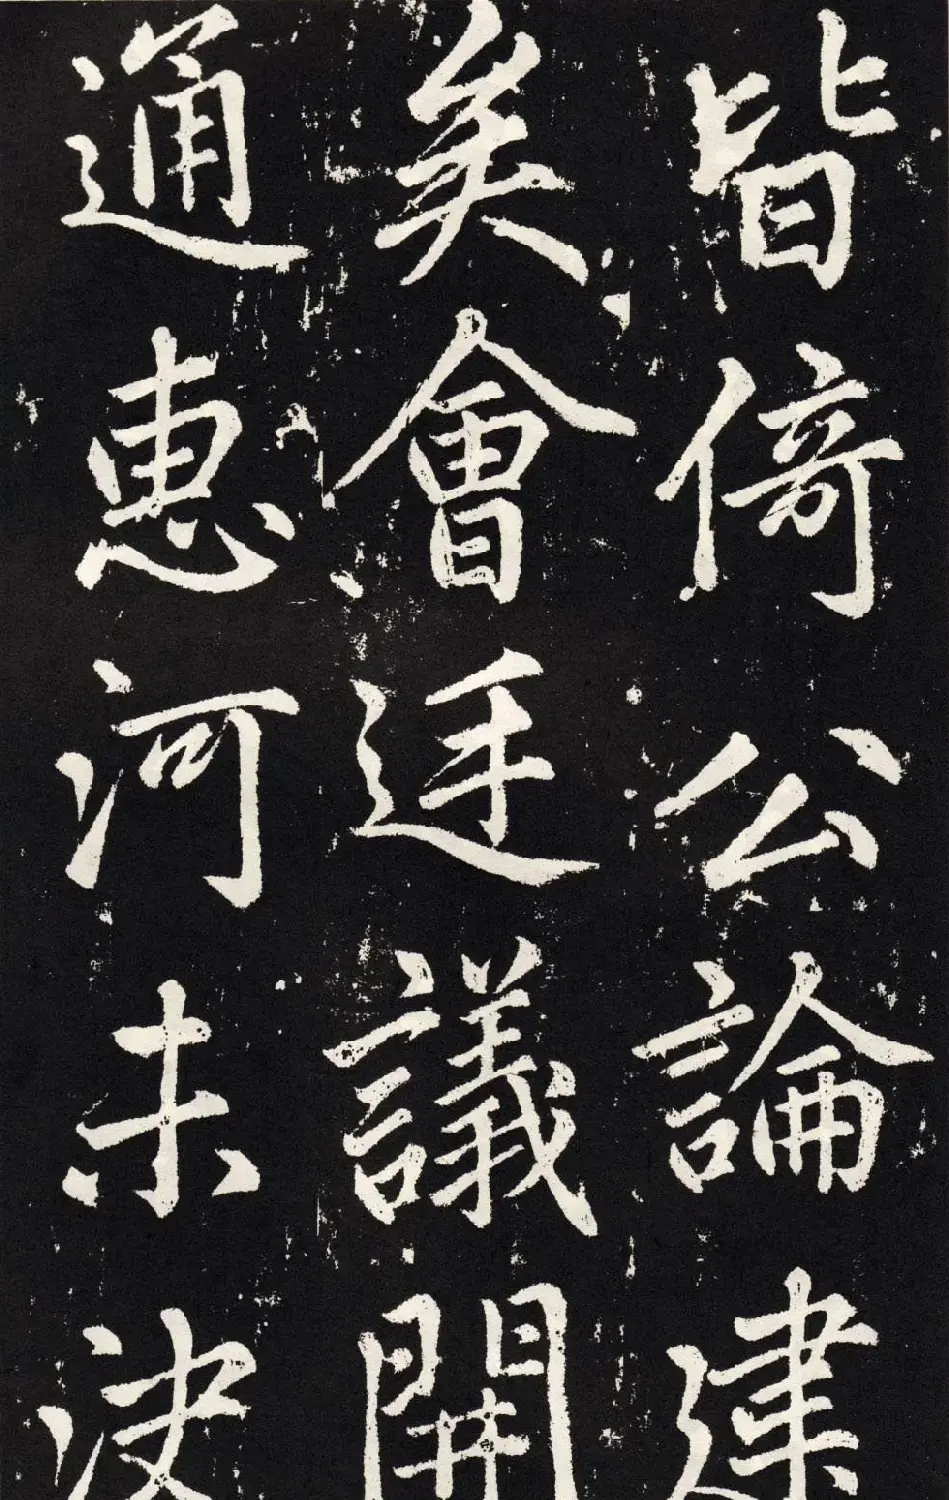 皆倚公論建
矣會廷議開
通惠河未決